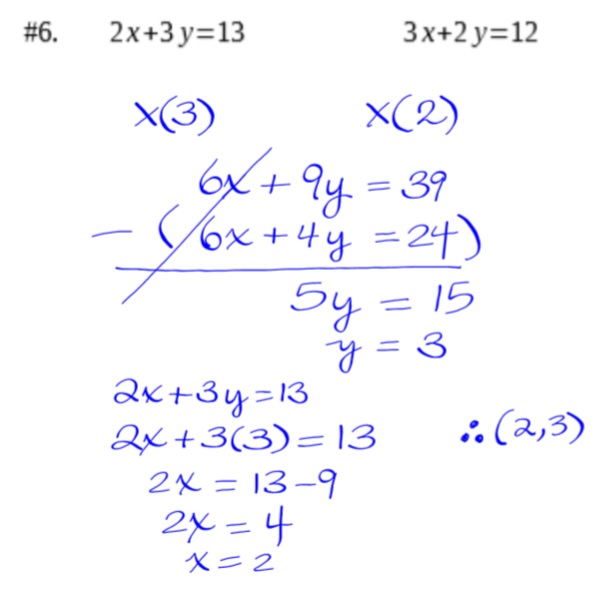 #6. 2x+3y=13 3x+2y=12
x(3) x(2)
6x + 9y = 39
- (6x + 4y = 24)
5y = 15
y = 3
2x+3y=13
2x+3(3)=13 ∴(2,3)
2x = 13-9
2x = 4
x = 2